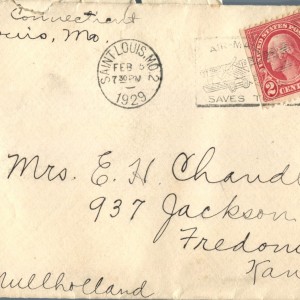 Connecticut
ouis, Mo.
SAINT LOUIS, MO. 2
FEB 5
7 30 PM
1929
AIR MA
SAVES T
UNITED STATES POS
2 CENT
Mrs. E. H. Chandl
937 Jackson
Fredon
Kan
Mullholland